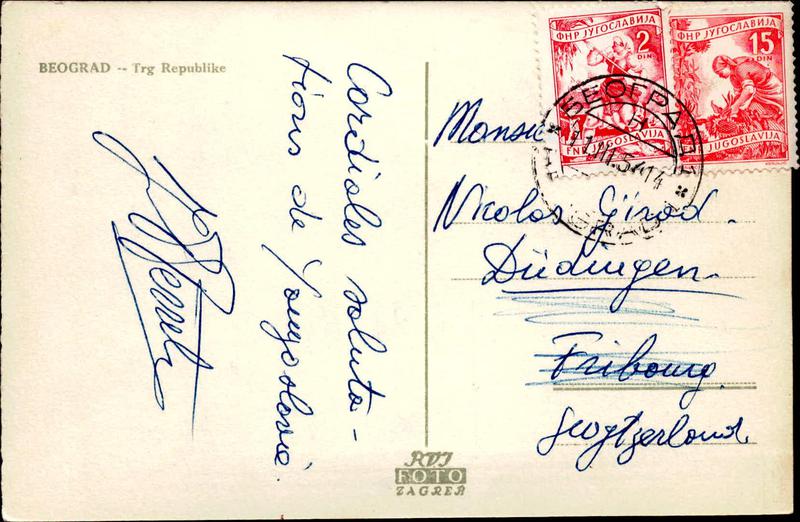 BEOGRAD -- Trg Republike
Cordiales saluta-
tions de Yougoslavia.
ФНР ЈУГОСЛАВИЈА
2
DIN
FNR JUGOSLAVIJA
ФНР ЈУГОСЛАВИЈА
15
DIN
JUGOSLAVIJA
БЕОГРАД
Nicolas
Düdingen.
Fribourg.
RVI
FOTO
ZAGREB